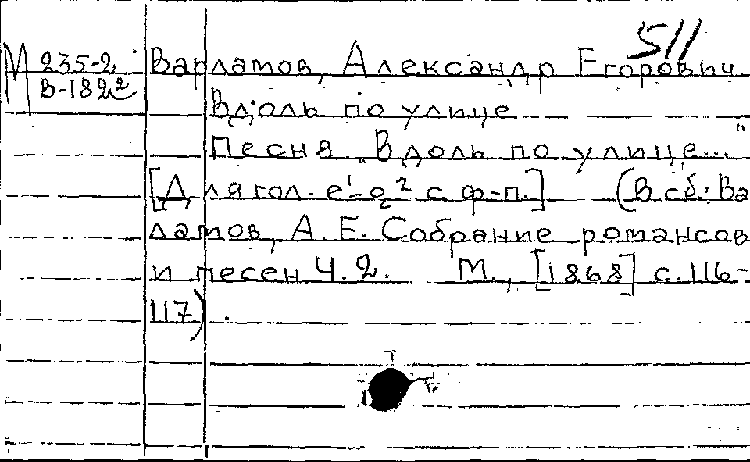 511
М 235-2 Варламов, Александр Егорович
В-182² Вдоль по улице
Песня „Вдоль по улице..."
[Для гол. e¹-g² с ф-п.] (В сб: Ва
ламов, А. Е. Собрание романсов
и песен Ч. 2. М., [1868] с. 116-
117).